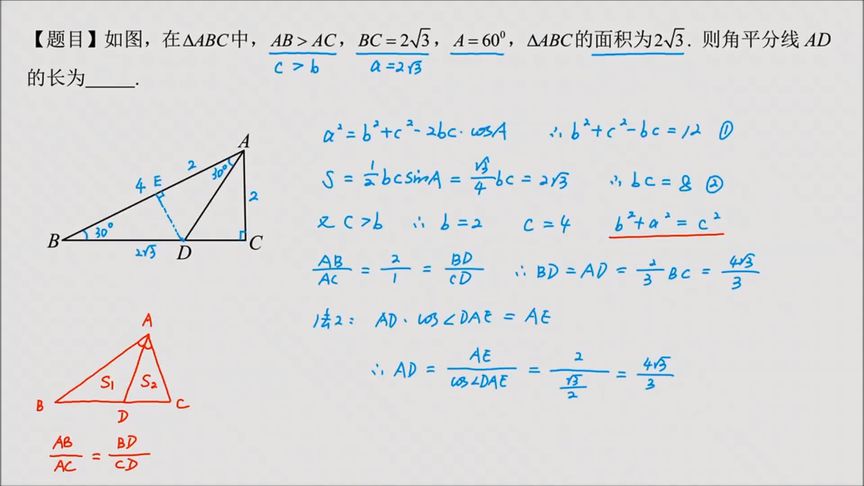 【题目】如图，在ΔABC中，AB > AC，BC = 2√3，A = 60⁰，ΔABC的面积为2√3．则角平分线 AD
c > b
a = 2√3
的长为_____.
A
2
30°
4
E
2
B
30°
2√3
D
C
a² = b² + c² - 2bc · cosA ∴ b² + c² - bc = 12 ①
S = 1/2 bc sinA = √3/4 bc = 2√3 ∴ bc = 8 ②
又 c > b ∴ b = 2 c = 4 b² + a² = c²
AB/AC = 2/1 = BD/CD ∴ BD = AD = 2/3 BC = 4√3/3
法2： AD · cos∠DAE = AE
∴ AD = AE/cos∠DAE = 2/(√3/2) = 4√3/3
A
S₁ S₂
B
D
C
AB/AC = BD/CD